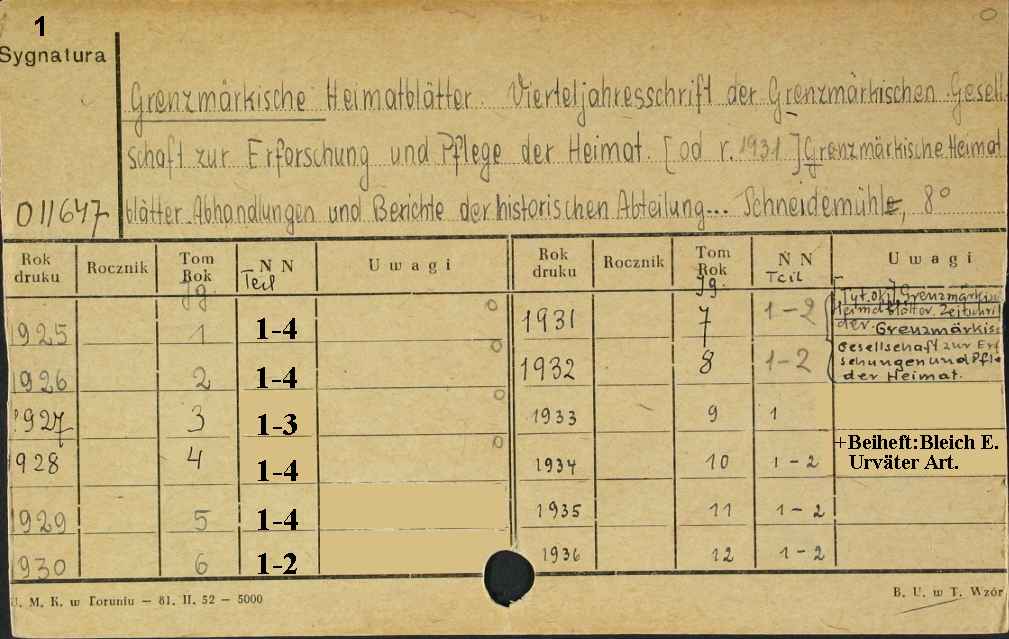 1
Sygnatura
Grenzmärkische Heimatblätter. Vierteljahresschrift der Grenzmärkischen Gesell
schaft zur Erforschung und Pflege der Heimat. [od r. 1931] Grenzmärkische Heimat
011647 blätter Abhandlungen und Berichte der historischen Abteilung... Schneidemühle, 8°
Rok druku Rocznik Tom Rok Jg. N N Teil Uwagi Rok druku Rocznik Tom Rok Jg. N N Teil Uwagi
1925 1 1-4 1931 7 1-2 Tyt. okł. Grenzmärkis
Heimatblätter. Zeitschrif
der Grenzmärkis
1926 2 1-4 1932 8 1-2 Gesellschaft zur Erf
schungen und Pfle
der Heimat.
1927 3 1-3 1933 9 1
1928 4 1-4 1934 10 1-2 +Beiheft: Bleich E.
Urväter Art.
1929 5 1-4 1935 11 1-2
1930 6 1-2 1936 12 1-2
U. M. K. w Toruniu — 81. II. 52 — 5000 B. U. w T. Wzór